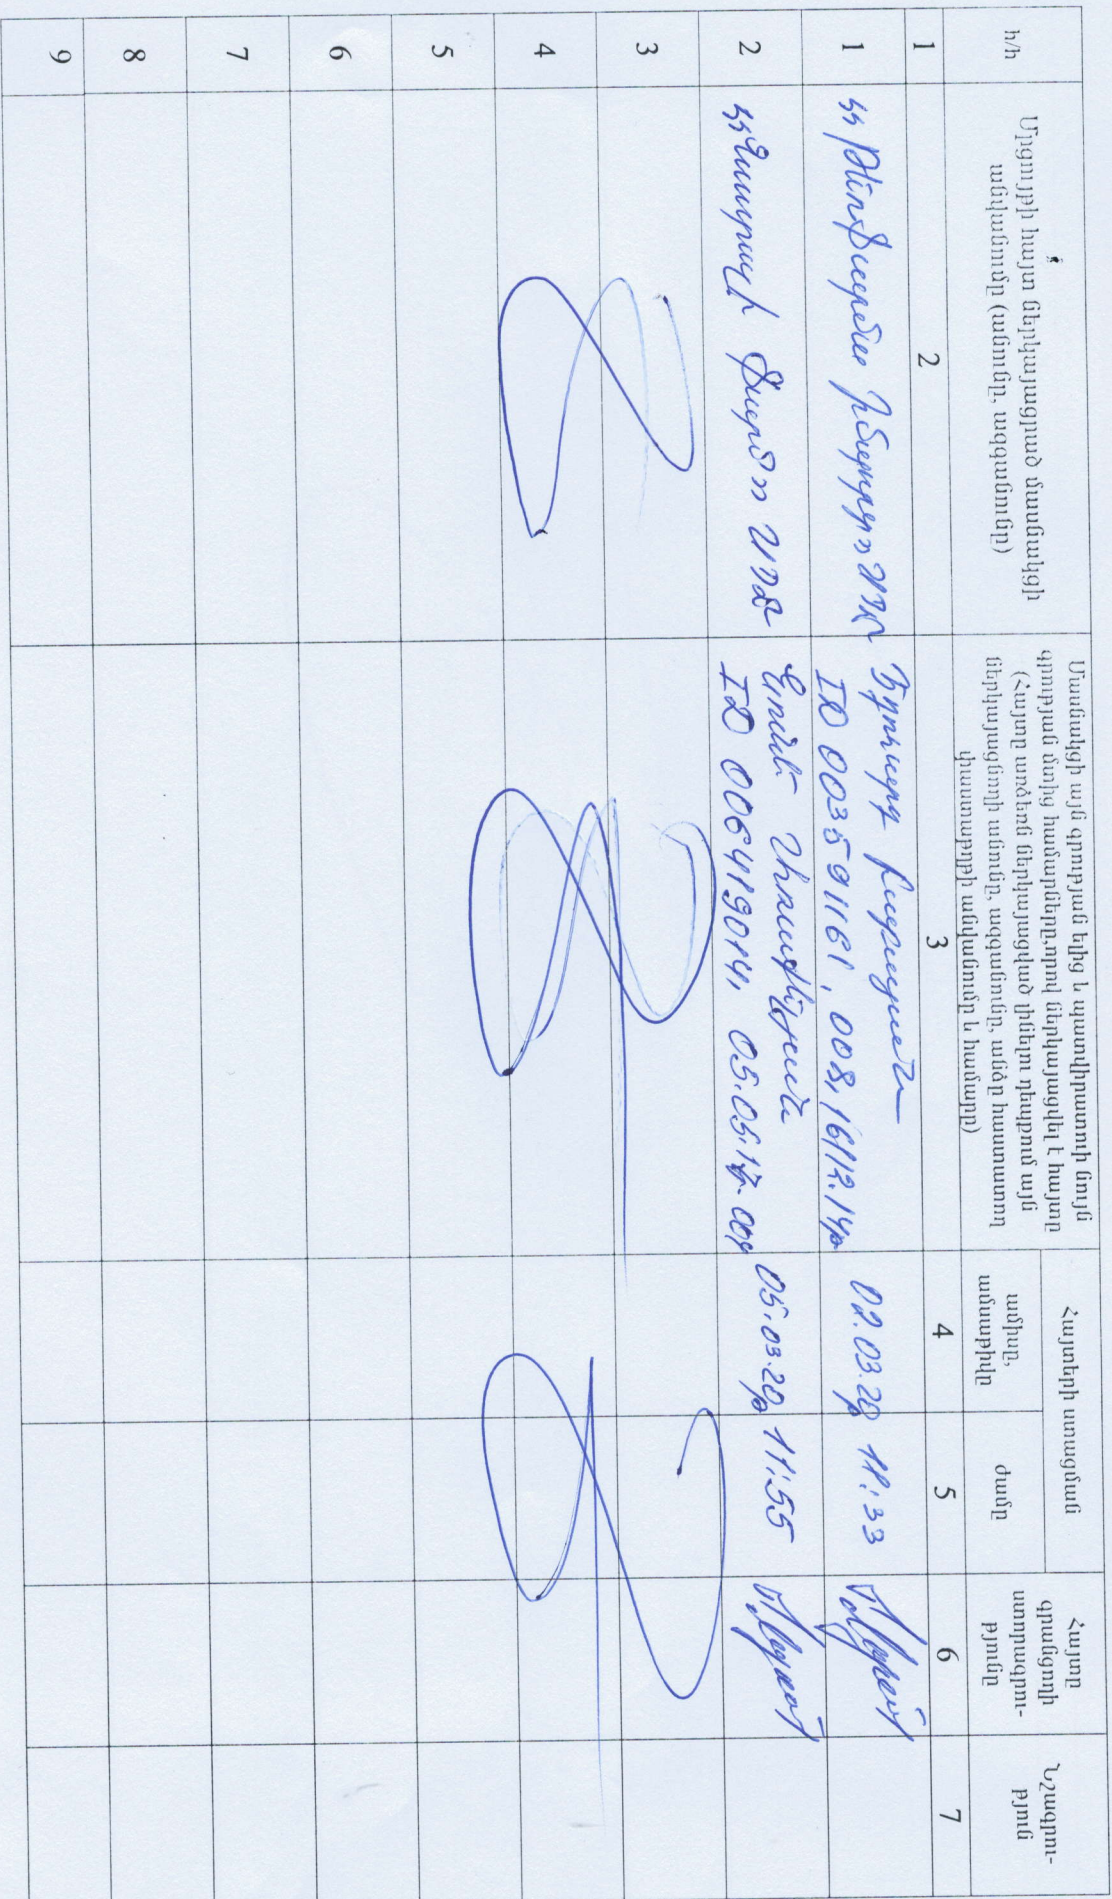 հ/հ
Մրցույթի հայտ ներկայացրած մասնակցի
անվանումը (անունը, ազգանունը)
Մասնակցի այն գրության ելից և պատվիրատուի նույն
գրության մտից համարները,որով ներկայացվել է հայտը
(Հայտը առձեռն ներկայացված լինելու դեպքում այն
ներկայացնողի անունը, ազգանունը, անձը հաստատող
փաստաթղթի անվանումը և համարը)
Հայտերի ստացման
ամիսը,
ամսաթիվը
ժամը
Հայտը
գրանցողի
ստորագրու-
թյունը
Նշագրու-
թյուն
1 2 3 4 5 6 7
1
ՍՊԸ
Էդուարդ
ID 003591161, 008, 16/12.14թ
02.03.20թ
11:33
2
ֆարմ ՍՊԸ
ID 006419014, 05.05.17. 004
05.03.20թ
11:55
3
4
5
6
7
8
9